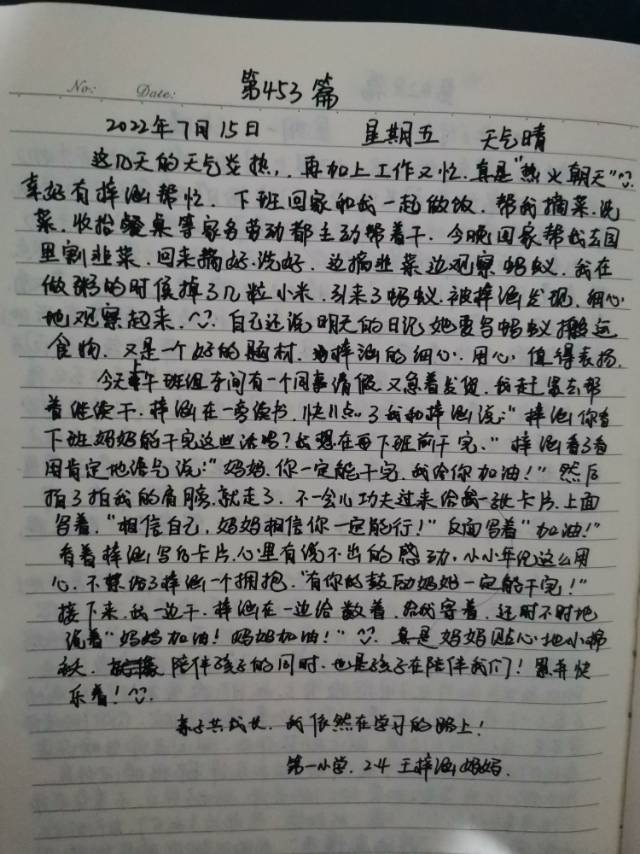 No: Date: 第453篇
2022年7月15日 星期五 天气晴
这几天的天气炎热，再加上工作又忙.真是"热火朝天"
幸好有梓涵帮忙.下班回家和我一起做饭.帮我摘菜.洗
菜.收拾餐桌等家务劳动都主动帮着干.今晚回家帮我去园
里割韭菜.回来摘好.洗好.边摘韭菜边观察蚂蚁.我在
做粥的时候掉了几粒小米.引来了蚂蚁.被梓涵发现.细心
地观察起来.自己还说明天的日记她要写蚂蚁搬运
食物.又是一个好的题材.梓涵的细心.用心.值得表扬.
今天上午班组车间有一个同事请假.又急着发货.我赶紧去帮
着继续干.梓涵在一旁读书.快11点了我和梓涵说:"梓涵你看
下班妈妈能干完这些活吗?我想在下班前干完."梓涵看了看
用肯定地语气说:"妈妈.你一定能干完.我给你加油!"然后
拍了拍我的肩膀.就走了.不一会儿功夫过来给我一张卡片.上面
写着."相信自己,妈妈相信你一定能行!"反面写着"加油!"
看着梓涵写的卡片.心里有说不出的感动.小小年纪这么用
心.不禁给了梓涵一个拥抱."有你的鼓励妈妈一定能干完!"
接下来.我一边干.梓涵在一边给数着.给我穿着.还时不时地
说着"妈妈加油!妈妈加油!"真是妈妈贴心地小棉
袄.陪伴孩子的同时.也是孩子在陪伴我们!累并快
乐着!
亲子共成长.我依然在学习的路上!
第一小学.2.4 王梓涵妈妈.